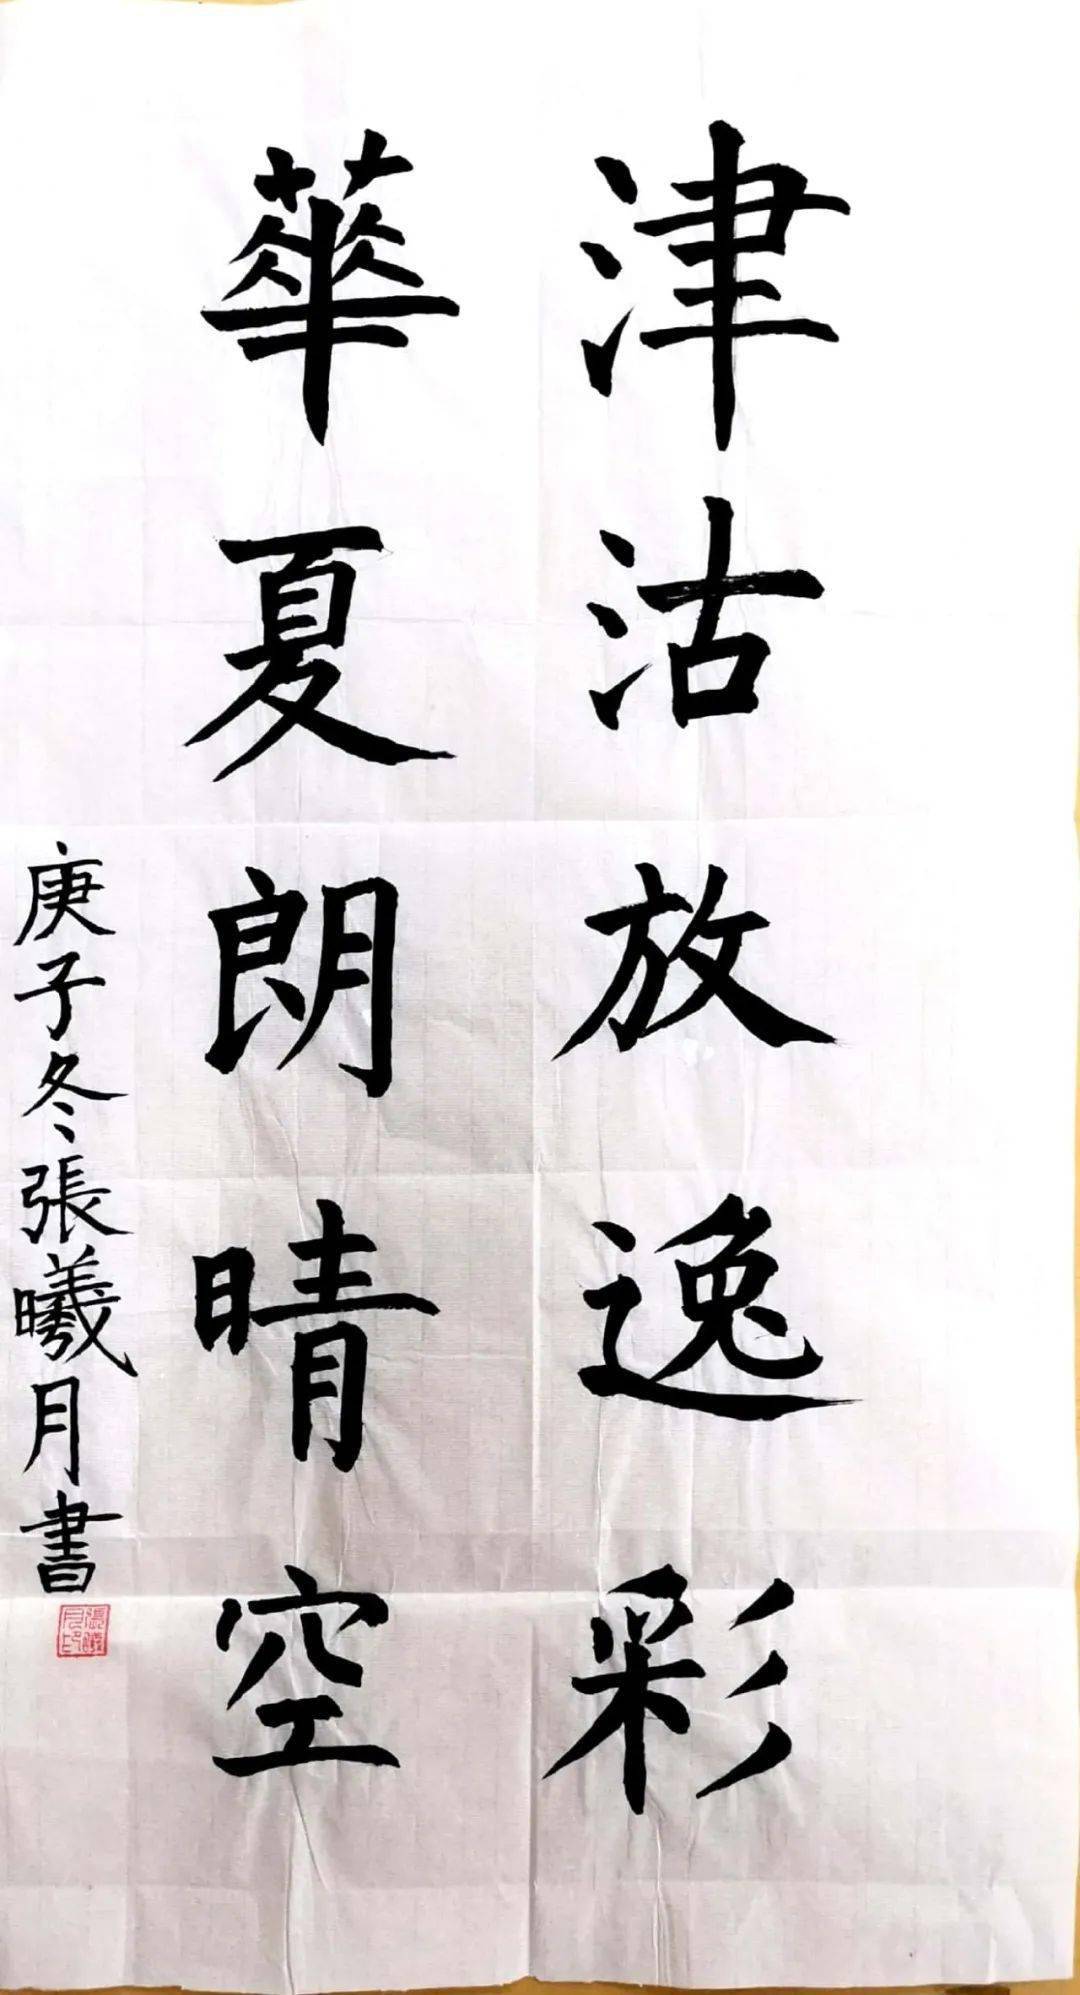 津沽放逸彩
華夏朗晴空
庚子冬張曦月書
張曦月印